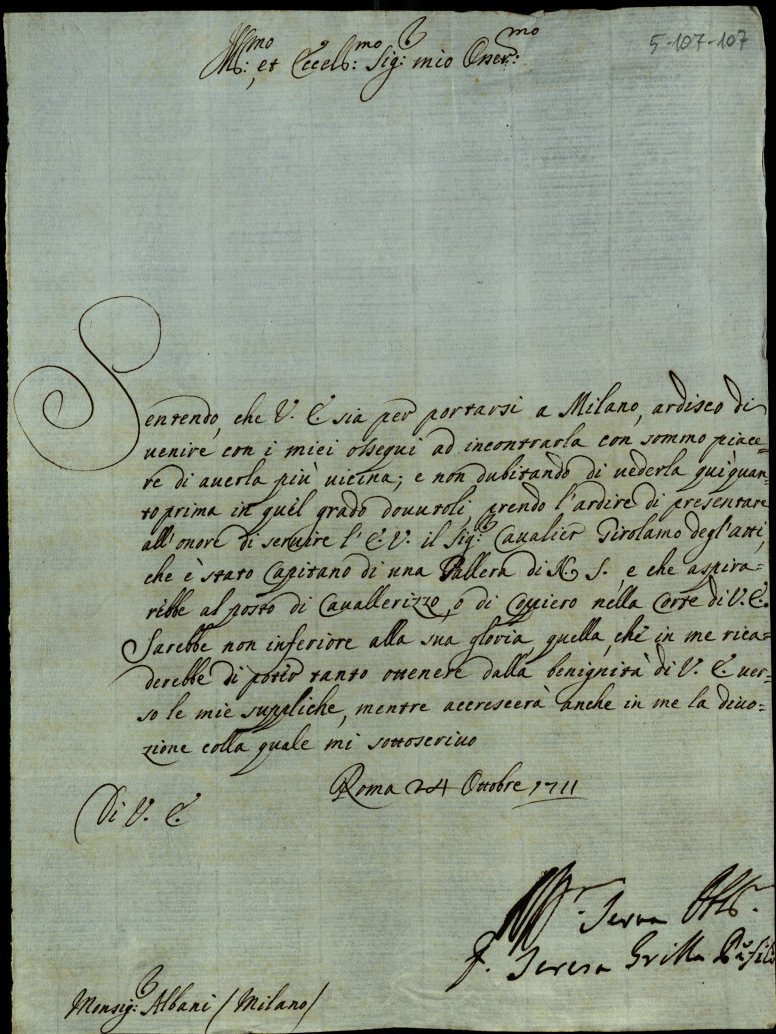 5-107-107
Ill:mo et Eccell:mo Sig:r mio Osser:mo
Sentendo, che V. E. sia per portarsi a Milano, ardisco di
uenire con i miei ossequi ad incontrarla con sommo piace=
re di auerla più uicina; e non dubitando di uederla quì quan=
to prima in quel grado douutoli, prendo l'ardire di presentare
all'onore di seruire l'E. V. il Sig:r Caualier Girolamo degl'atti,
che è stato Capitano di una Gallera di N. S., e che aspira=
rebbe al posto di Cauallerizzo, o di Coppiero nella Corte di V. E.
Sarebbe non inferiore alla sua gloria quella, che in me rica=
derebbe di poter tanto ottenere dalla benignità di V. E. uer=
so le mie suppliche, mentre accrescerà anche in me la diuo=
zione colla quale mi sottoscriuo
Roma 24 Ottobre 1711
Di V. E.
Serua
Teresa Grilla Pãfili
Monsig:r Albani / Milano /